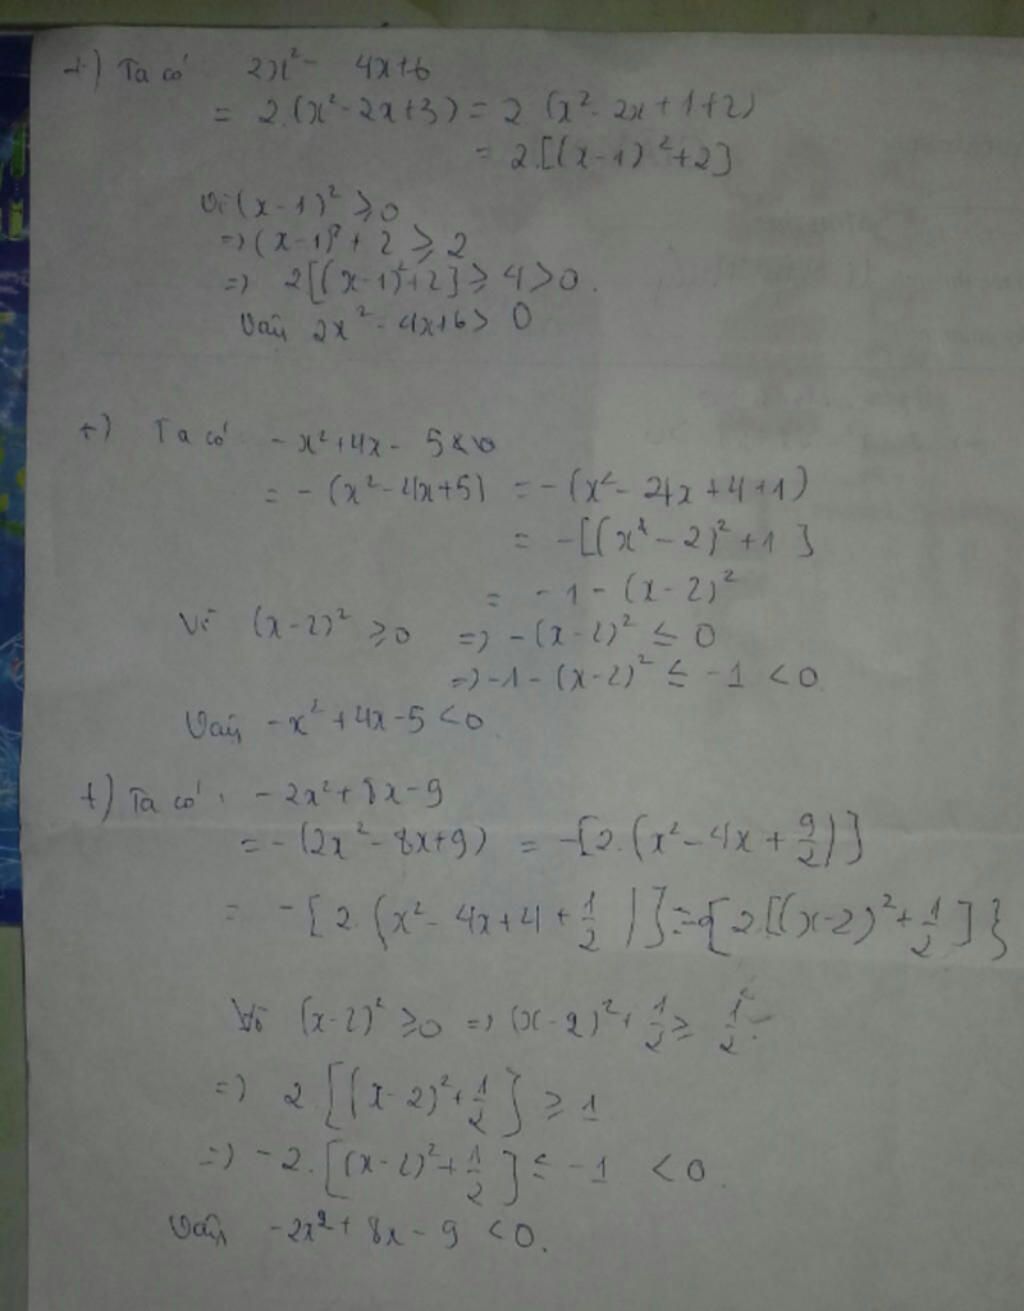 +) Ta có 2x² - 4x+6
= 2.(x² - 2x+3) = 2 (x² - 2x + 1+2)
= 2.[(x-1)²+2]
Vì (x-1)² ≥ 0
=> (x-1)² + 2 ≥ 2
=> 2[(x-1)²+2] ≥ 4 > 0.
Vậy 2x² - 4x+6 > 0
+) Ta có -x²+4x - 5 < 0
= -(x² - 4x+5) = -(x² - 4x + 4 + 1)
= -[(x - 2)² + 1]
= -1 - (x-2)²
Vì (x-2)² ≥ 0 => -(x-2)² ≤ 0
=> -1 - (x-2)² ≤ -1 < 0
Vậy -x² + 4x - 5 < 0.
+) Ta có: -2x² + 8x - 9
= -(2x² - 8x+9) = -[2.(x² - 4x + 9/2)]
= -[2.(x² - 4x+4 + 1/2)] = -{2.[(x-2)² + 1/2]}
Vì (x-2)² ≥ 0 => (x-2)² + 1/2 ≥ 1/2
=> 2.[(x-2)² + 1/2] ≥ 1
=> -2.[(x-2)² + 1/2] ≤ -1 < 0.
Vậy -2x² + 8x - 9 < 0.